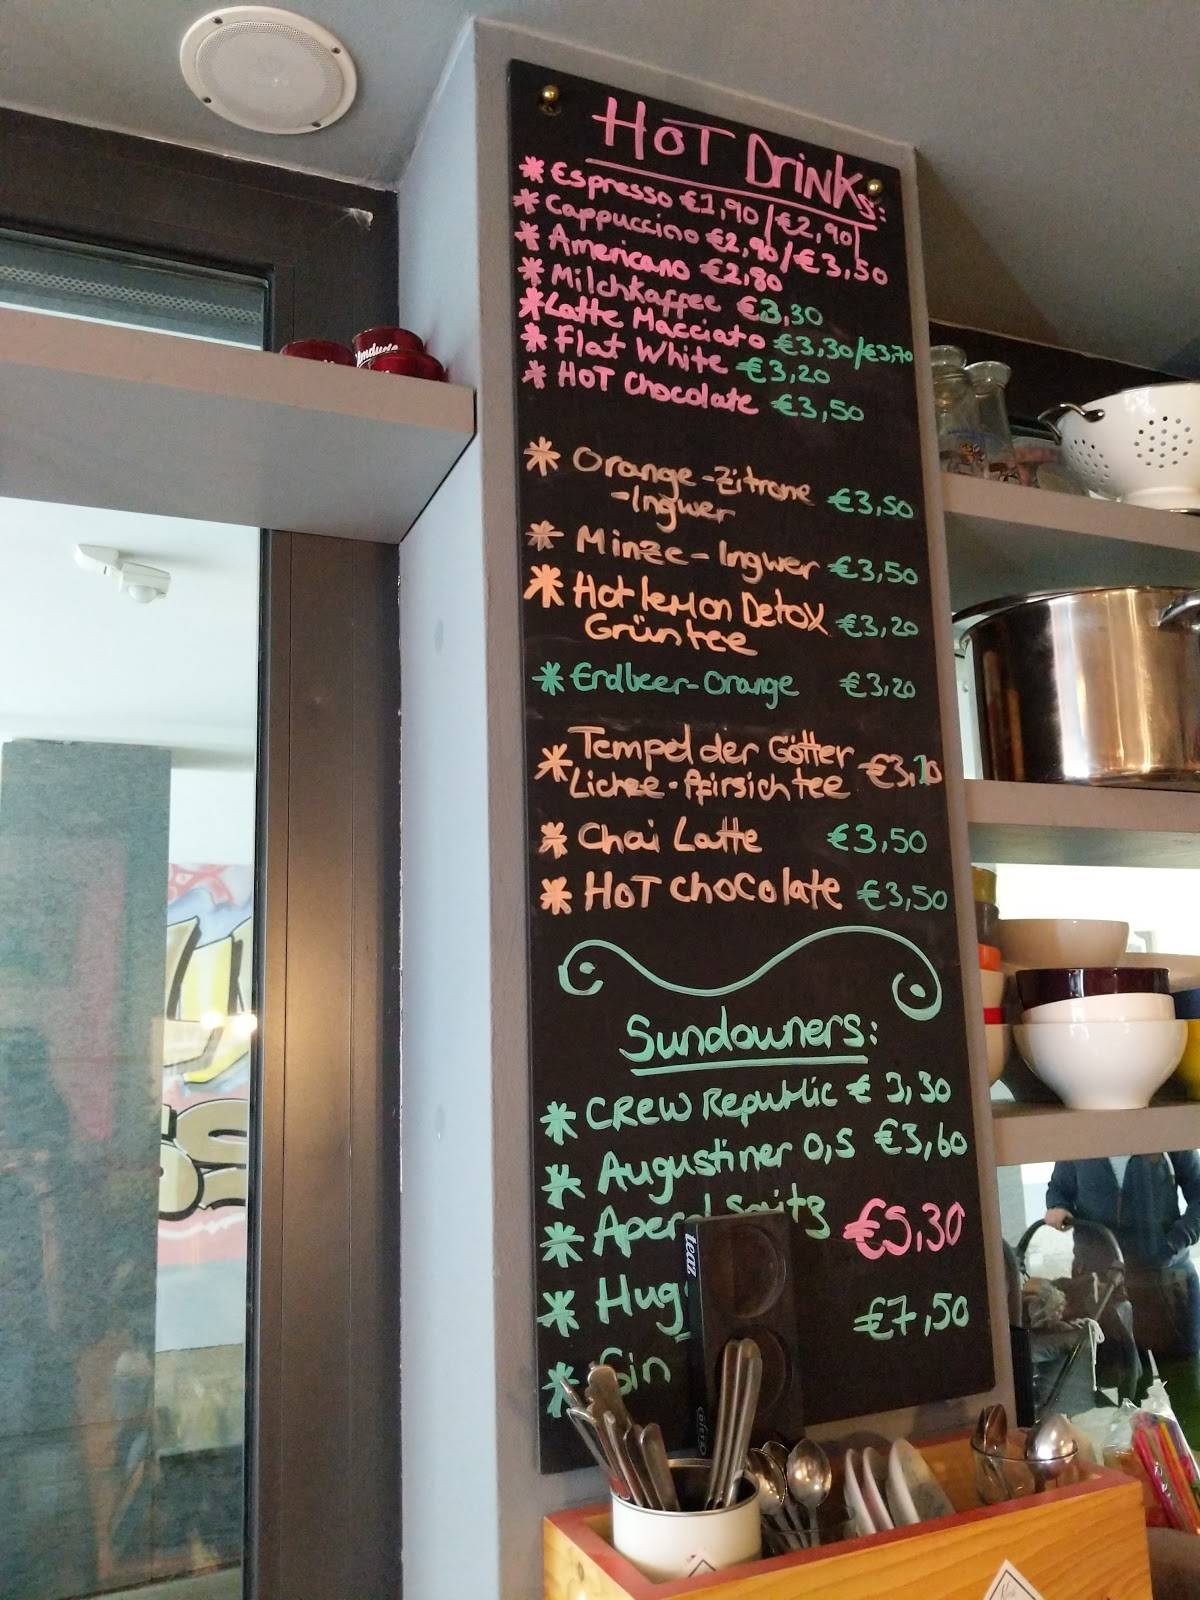 HOT Drinks:
* Espresso €1,90/€2,90
* Cappuccino €2,90/€3,50
* Americano €2,80
* Milchkaffee €3,30
* Latte Macciato €3,30/€3,70
* Flat White €3,20
* HOT Chocolate €3,50
* Orange-Zitrone
-Ingwer €3,50
* Minze-Ingwer €3,50
* Hot lemon Detox
Grüntee €3,20
* Erdbeer-Orange €3,20
* Tempel der Götter
Lichee-Pfirsichtee €3,20
* Chai Latte €3,50
* HOT chocolate €3,50
Sundowners:
* CREW Republic € 3,30
* Augustiner 0,5 €3,60
* Aperol Spritz €5,30
* Hug
€7,50
* Gin
teaz